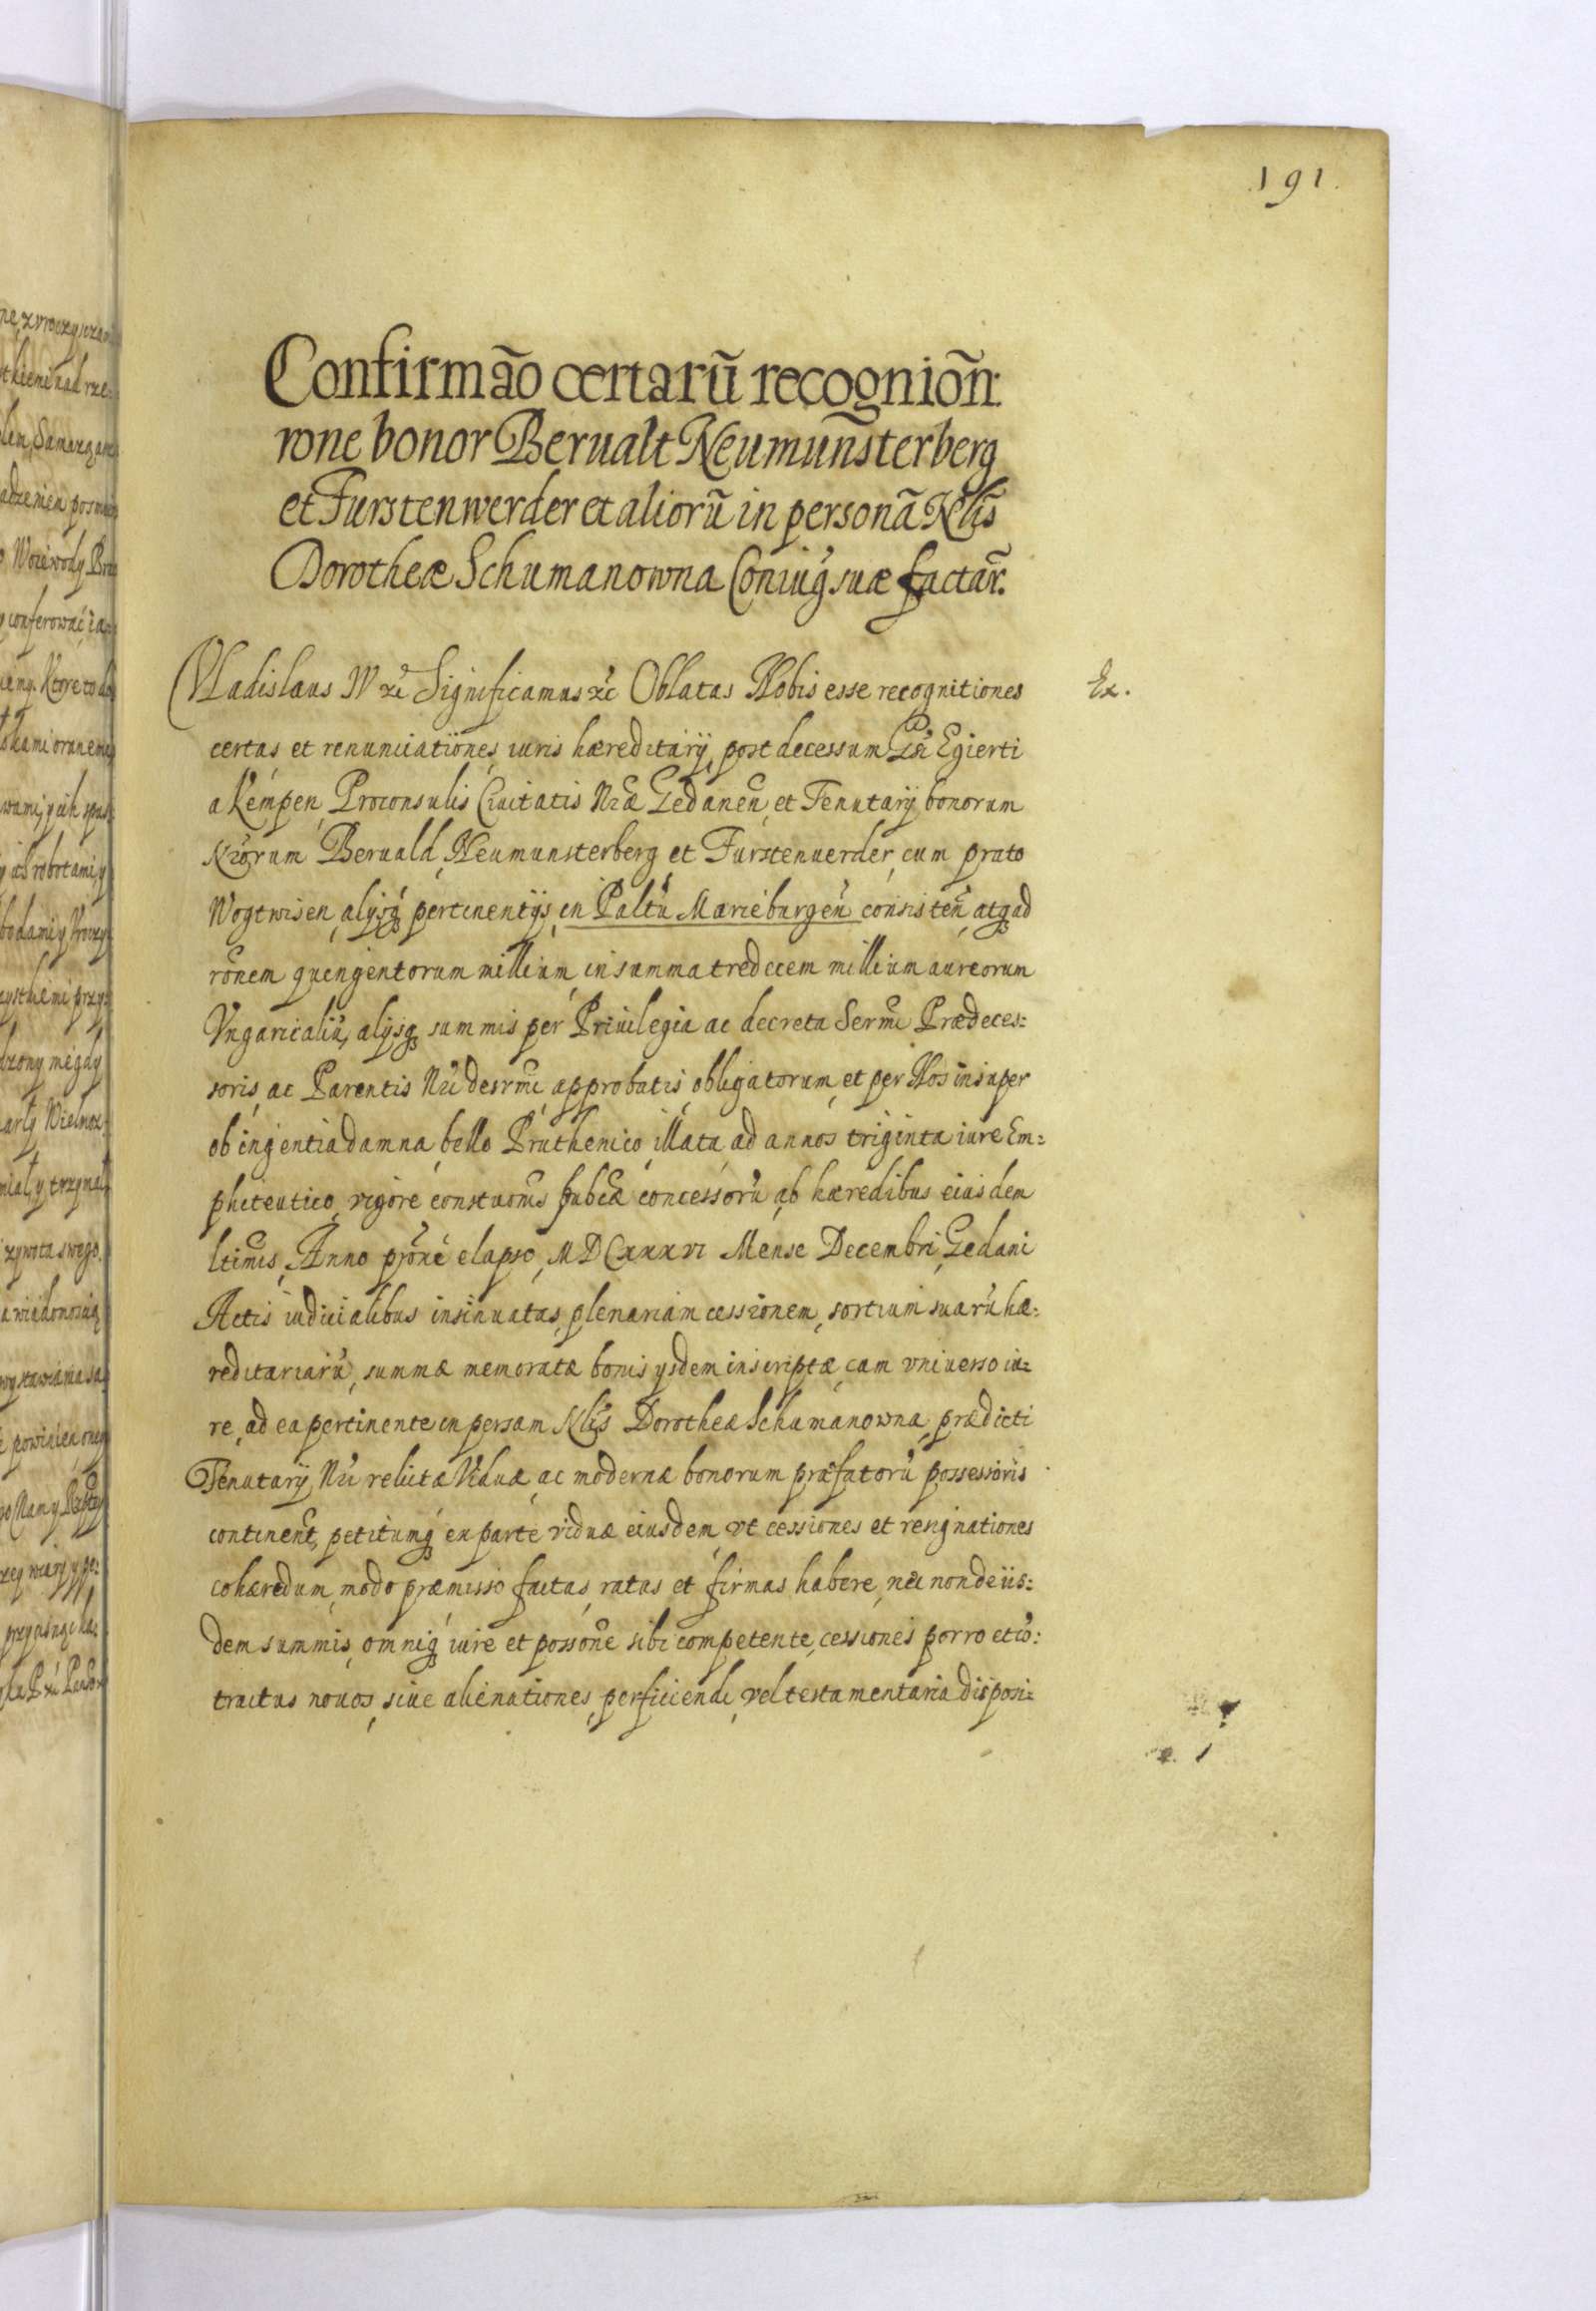 191.
Confirmão certarũ recogniõn:
rone bonor Berualt Neumunsterberg
et Furstenwerder et aliorũ in personã Nlis
Dorotheæ Schumanowna Coniug suæ factar̃.
Vladislaus IV &c Significamus &c Oblatas Nobis esse recognitiones
Ex.
certas et renunciationes, iuris hæreditarij, post decessum Gsi Egierti
a Kempen, Proconsulis Ciuitatis Nræ Gedanen̄, et Tenutarij bonorum
Nrorum Beruald, Neumunsterberg et Furstenuerder, cum prato
Wogtwisen, alijsq pertinentijs, in Paltu Marieburgen̄ consisten̄, atq ad
ronem quingentorum millium, in summa tredecem millium aureorum
Vngaricaliũ, alijsq summis per Priuilegia ac decreta Sermi Prædeces:
soris, ac Parentis Nri desrmi approbatis, obligatorum, et per Nos insuper
ob ingentia damna, bello Pruthenico, illata, ad annos triginta iure Em:
phiteutico, vigore constuonis pubcæ concessorũ, ab hæredibus eiusdem
ltimis, Anno prone elapso, MDCxxxvi Mense Decembri, Gedani
Actis iudicialibus insinuatas, plenariam cessionem, sortium suarũ hæ:
reditariarũ, summæ memoratæ bonis ysdem inscriptæ, cum vniuerso iu:
re, ad ea pertinente in persam Nlis Dorotheæ Schumanowna, prædicti
Tenutarij Nri relictæ Viduæ, ac modernæ bonorum præfatorũ possessoris
continent, petitumq ex parte viduæ eiusdem, vt cessiones et resignationes
cohæredum, modo præmisso factas, ratas et firmas habere, nec non de iis:
dem summis, omniq iure et possone sibi competente, cessiones porro et cõ:
tractus nouos, siue alienationes, perficiendi, vel testamentaria disposi: